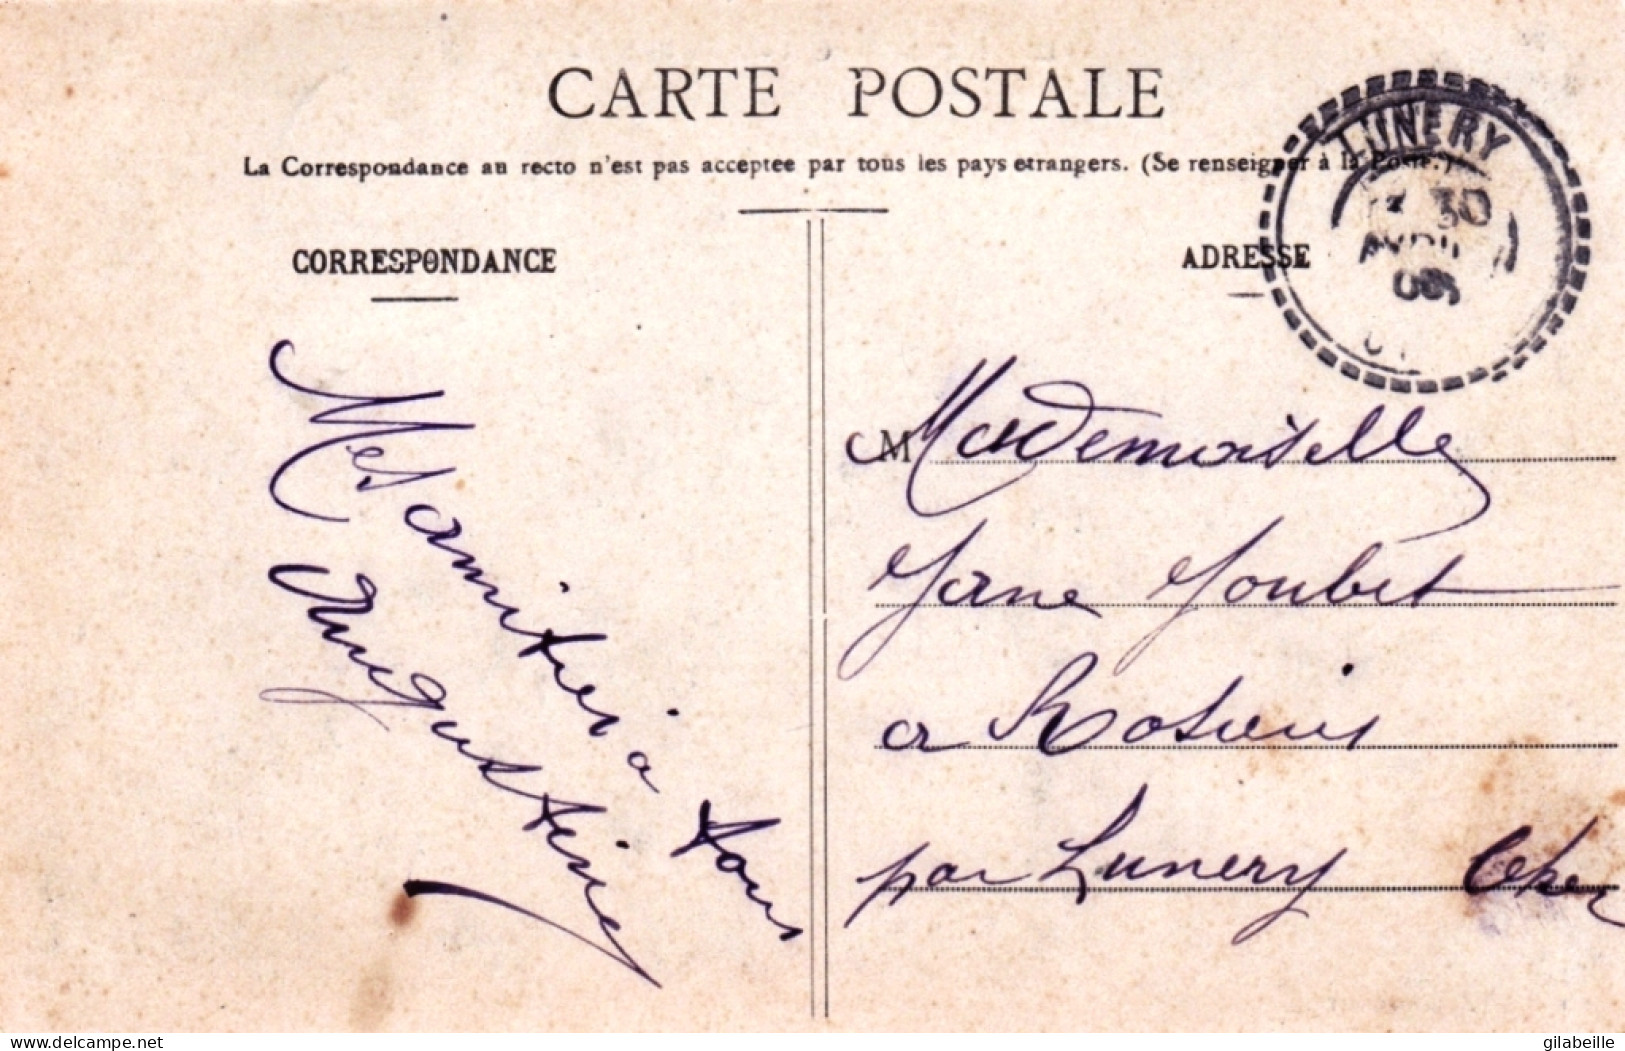 CARTE POSTALE
La Correspondance au recto n'est pas acceptee par tous les pays etrangers. (Se renseigner à la Poste.)
CORRESPONDANCE
ADRESSE
LUNERY
30
AVRIL
Mes amitiés à tous
Augustine
M Mademoiselle
Joubet
a Rosieres
par Lunery Cher
www.delcampe.net
gilabeille